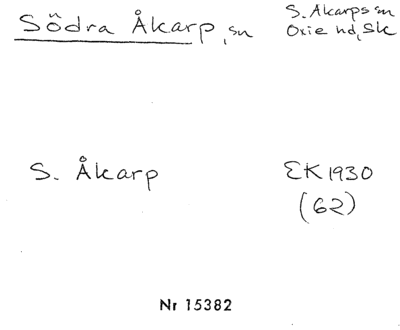 Södra Åkarp, sn
S. Åkarps sn
Oxie hd, Sk
S. Åkarp
EK 1930
(62)
Nr 15382